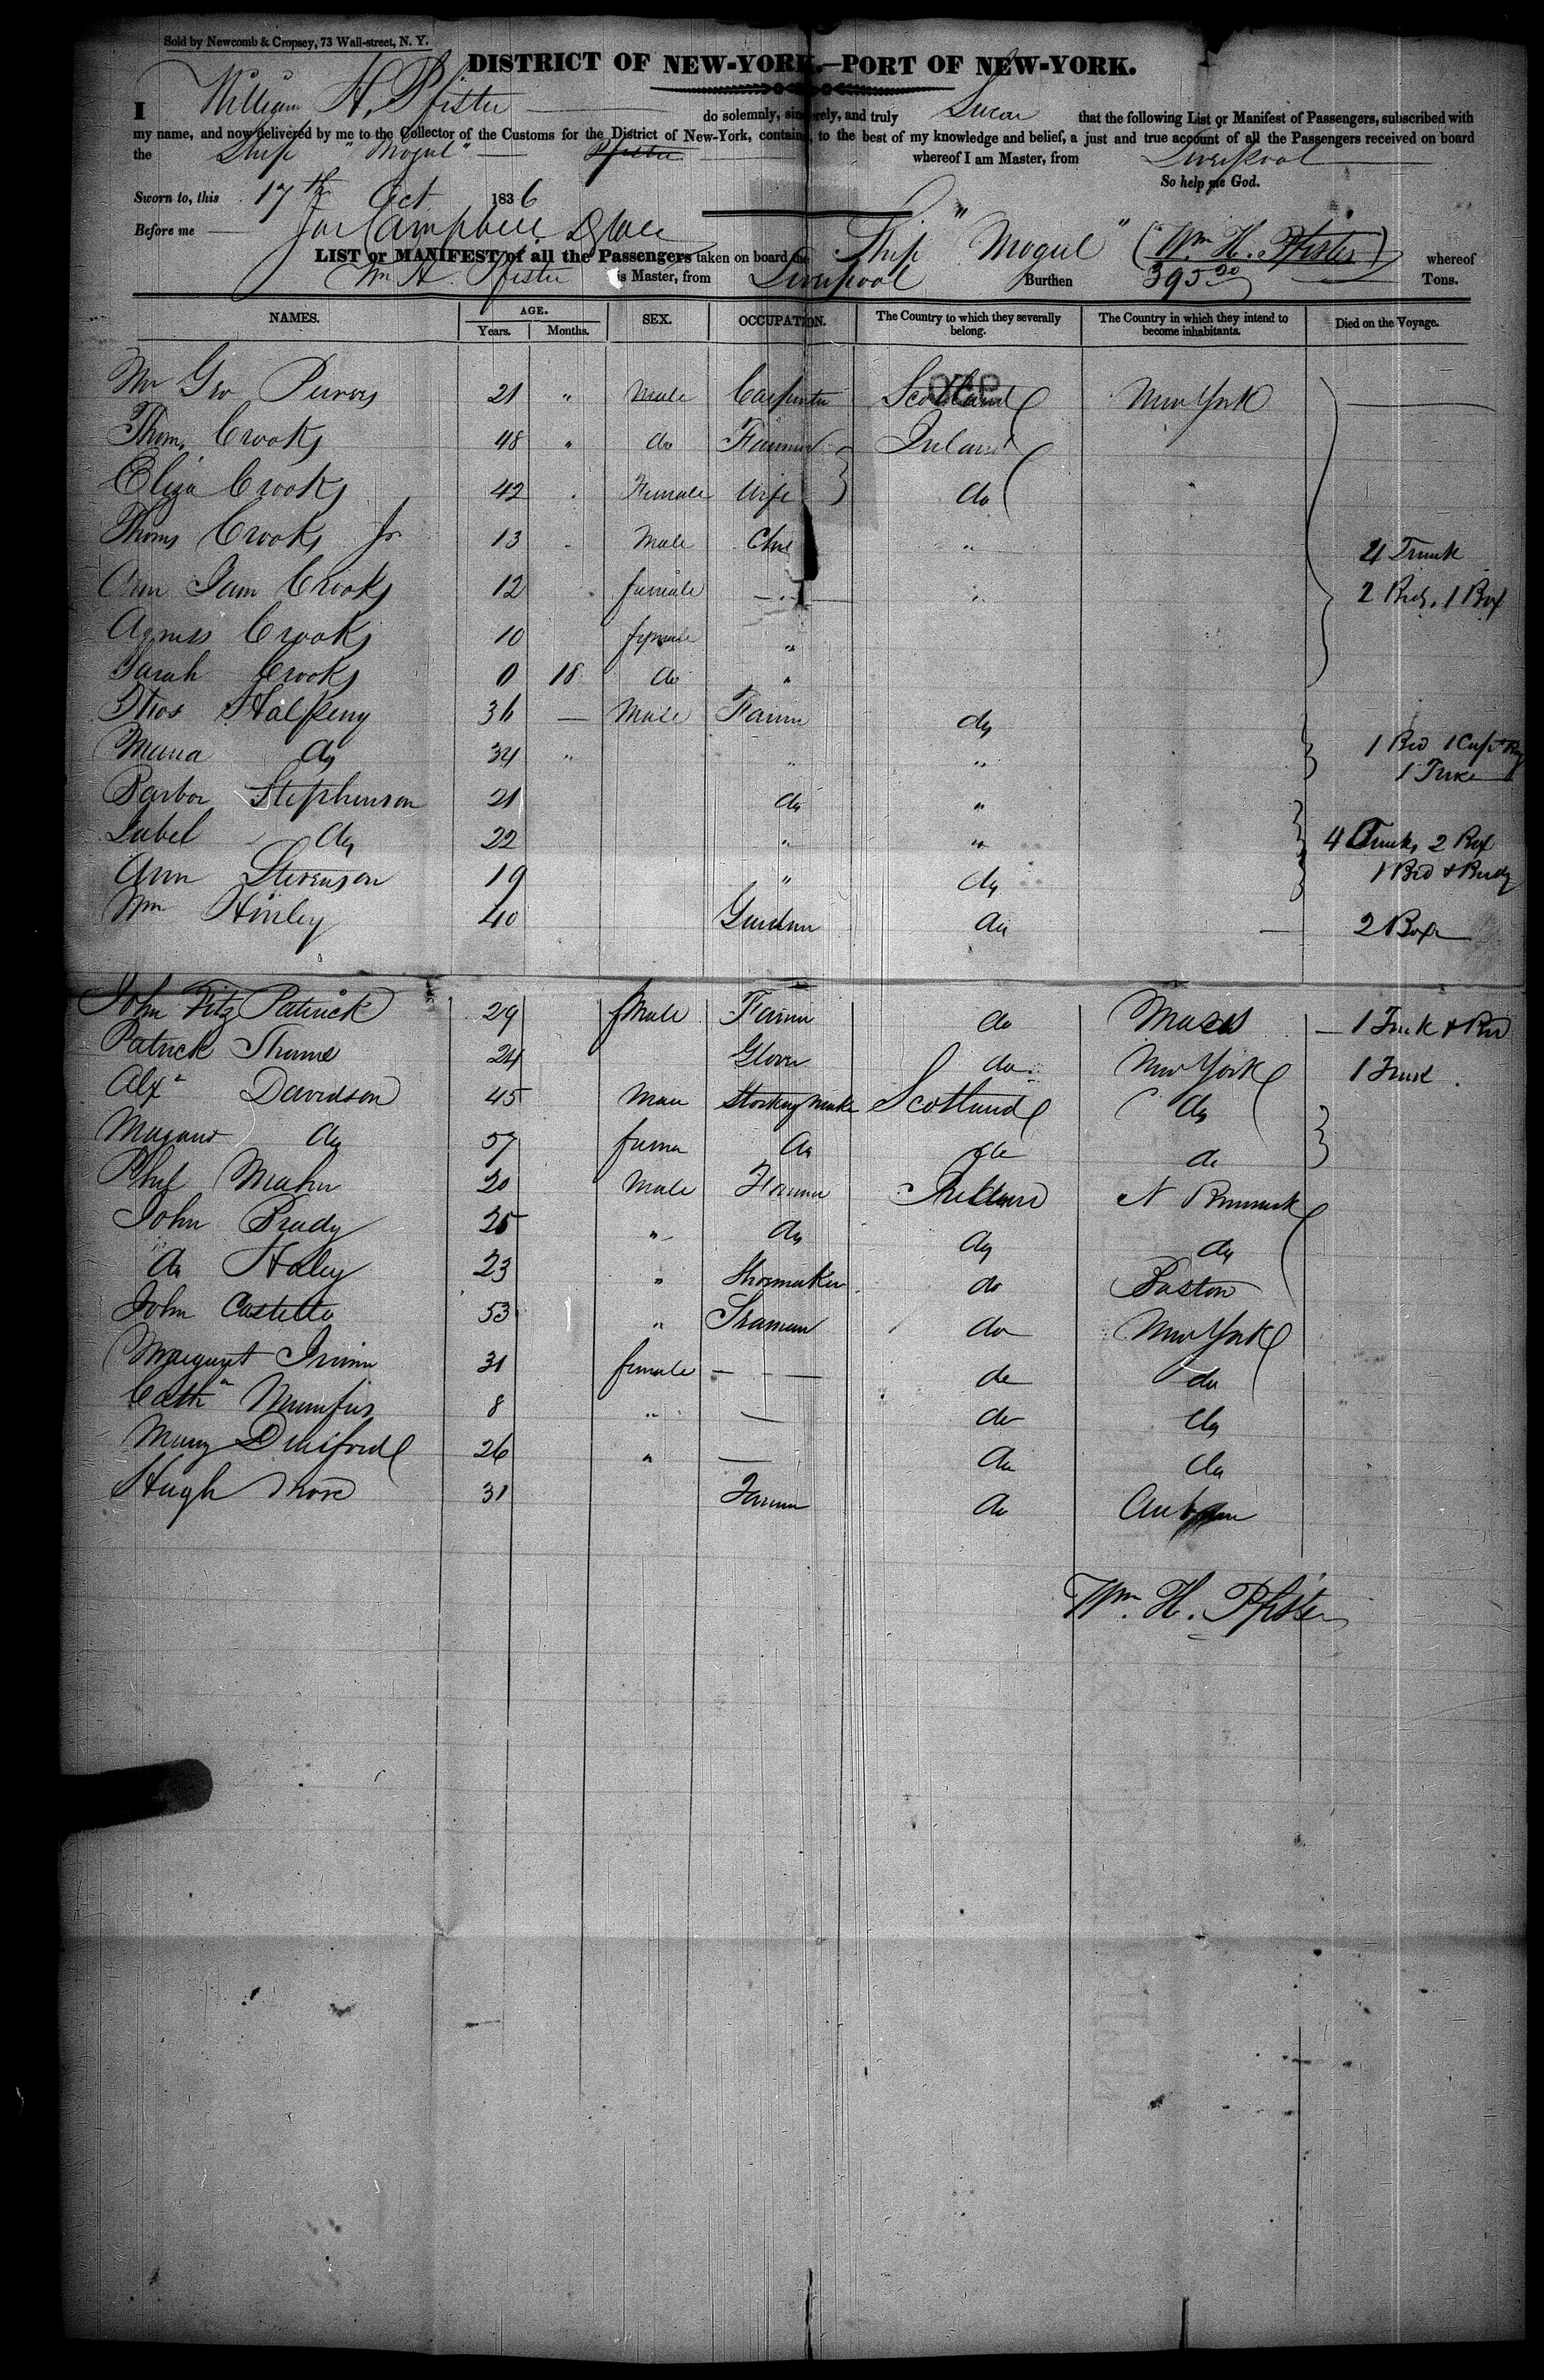 Sold by Newcomb & Cropsey, 73 Wall-street, N. Y.
DISTRICT OF NEW-YORK.—PORT OF NEW-YORK.
I William H. Pfister do solemnly, sincerely, and truly Swear that the following List or Manifest of Passengers, subscribed with
my name, and now delivered by me to the Collector of the Customs for the District of New-York, contains, to the best of my knowledge and belief, a just and true account of all the Passengers received on board
the Ship "Mogul" Pfister whereof I am Master, from Liverpool
So help me God.
Sworn to, this 17th Oct 1836
Before me Campbell
LIST or MANIFEST of all the Passengers taken on board the Ship "Mogul" (Wm. H. Pfister) whereof
Wm H Pfister is Master, from Liverpool Burthen 395 20 Tons.
NAMES. AGE. SEX. OCCUPATION. The Country to which they severally belong. The Country in which they intend to become inhabitants. Died on the Voyage.
Years. Months.
Mr Geo Purves 21 " Male Carpenter Scotland New York
Thom. Crooks 48 " do Farmer Ireland
Eliza Crooks 42 Female Wife do
Thoms Crooks Jr 13 Male "
4 Trunk
Ann Jam Crooks 12 female "
2 Beds, 1 Box
Agness Crooks 10 female "
Sarah Crooks 0 18 do "
Thos Halfpeny 36 — Male Farmr do
Maria do 34 " " "
1 Bed
Stephenson 21 do "
do 22 " "
4 Trunks 2 Box
Ann Stevenson 19 " do
1 Bed &
Wm Hinley 40 do 2 Boxes
John Fitz Patrick 29 Male Farmr do Mass — 1 Trnk & Bed
Patrick 24 Glover do New York 1 Trunk
Alxr Davidson 45 Male Stocking Maker Scotland do
do 57 do do do
Phil Mahr 20 Male Farmr Ireland N Brunswick
John Brady 25 " do do do
do Haley 23 " Shoemaker do Boston
John Castello 53 " Seaman do New York
Margaret 31 female — do do
Cathn 8 " — do do
Mary 26 " — do do
Hugh More 31 Farmr do Auburn
Wm. H. Pfister